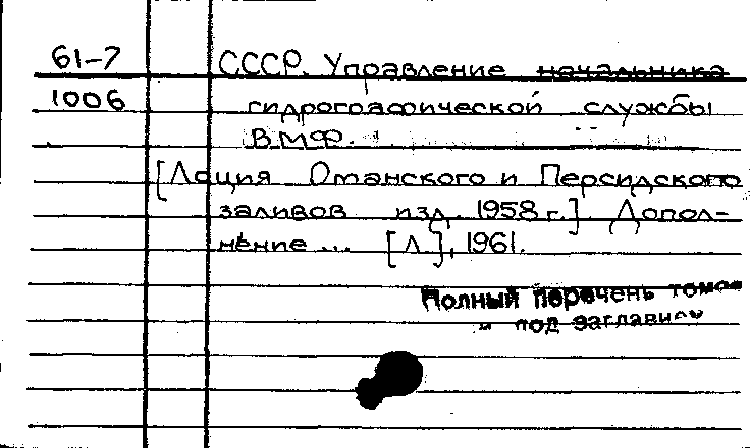 61-7 СССР. Управление начальника
1006 гидрографической службы
ВМФ.
[Лоция Оманского и Персидского
заливов изд. 1958 г.] Допол-
нение ... [Л.], 1961.
Полный перечень томов
и под заглавием